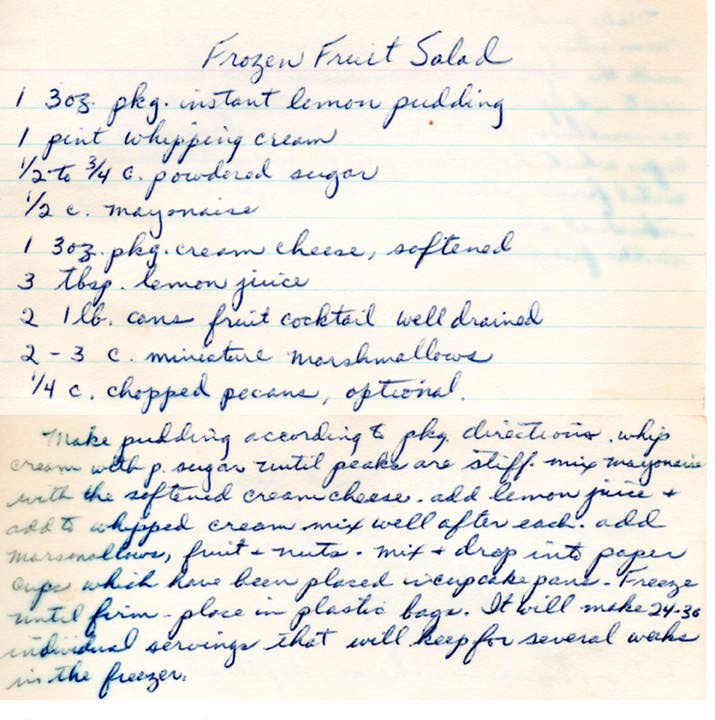 Frozen Fruit Salad
1 3oz. pkg. instant lemon pudding
1 pint whipping cream
1/2 to 3/4 c. powdered sugar
1/2 c. mayonaise
1 3oz. pkg. cream cheese, softened
3 tbsp. lemon juice
2 1 lb. cans fruit cocktail well drained
2 - 3 c. minieture marshmallows
1/4 c. chopped pecans, optional.
Make pudding according to pkg. directions. whip
cream with p. sugar until peaks are stiff. mix mayonaise
with the softened cream cheese. add lemon juice +
add to whipped cream mix well after each. add
marsmallows, fruit + nuts. mix + drop into paper
cups which have been placed in cupcake pans - Freeze
until firm - place in plastic bags. It will make 24-30
individual servings that will keep for several weeks
in the freezer.